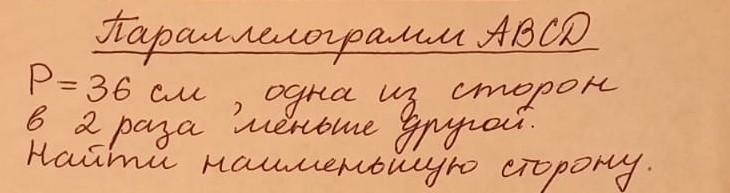 Параллелограмм ABCD
P = 36 см, одна из сторон
в 2 раза меньше другой.
Найти наименьшую сторону.